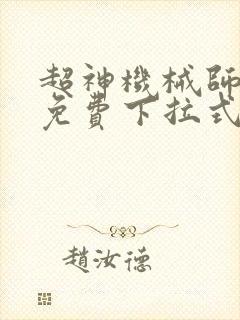 超神機械師
免費下拉式
趙汝德